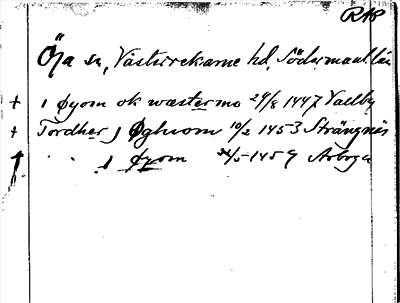 RAP
Öja sn, Västerrekarne hd, Södermanl. län
+ i øyom ok wæstermo 24/8 1447 Vallby
+ Tordher j Øghiom 10/2 1453 Strängnäs
" " j øyom /5 1459 Arboga